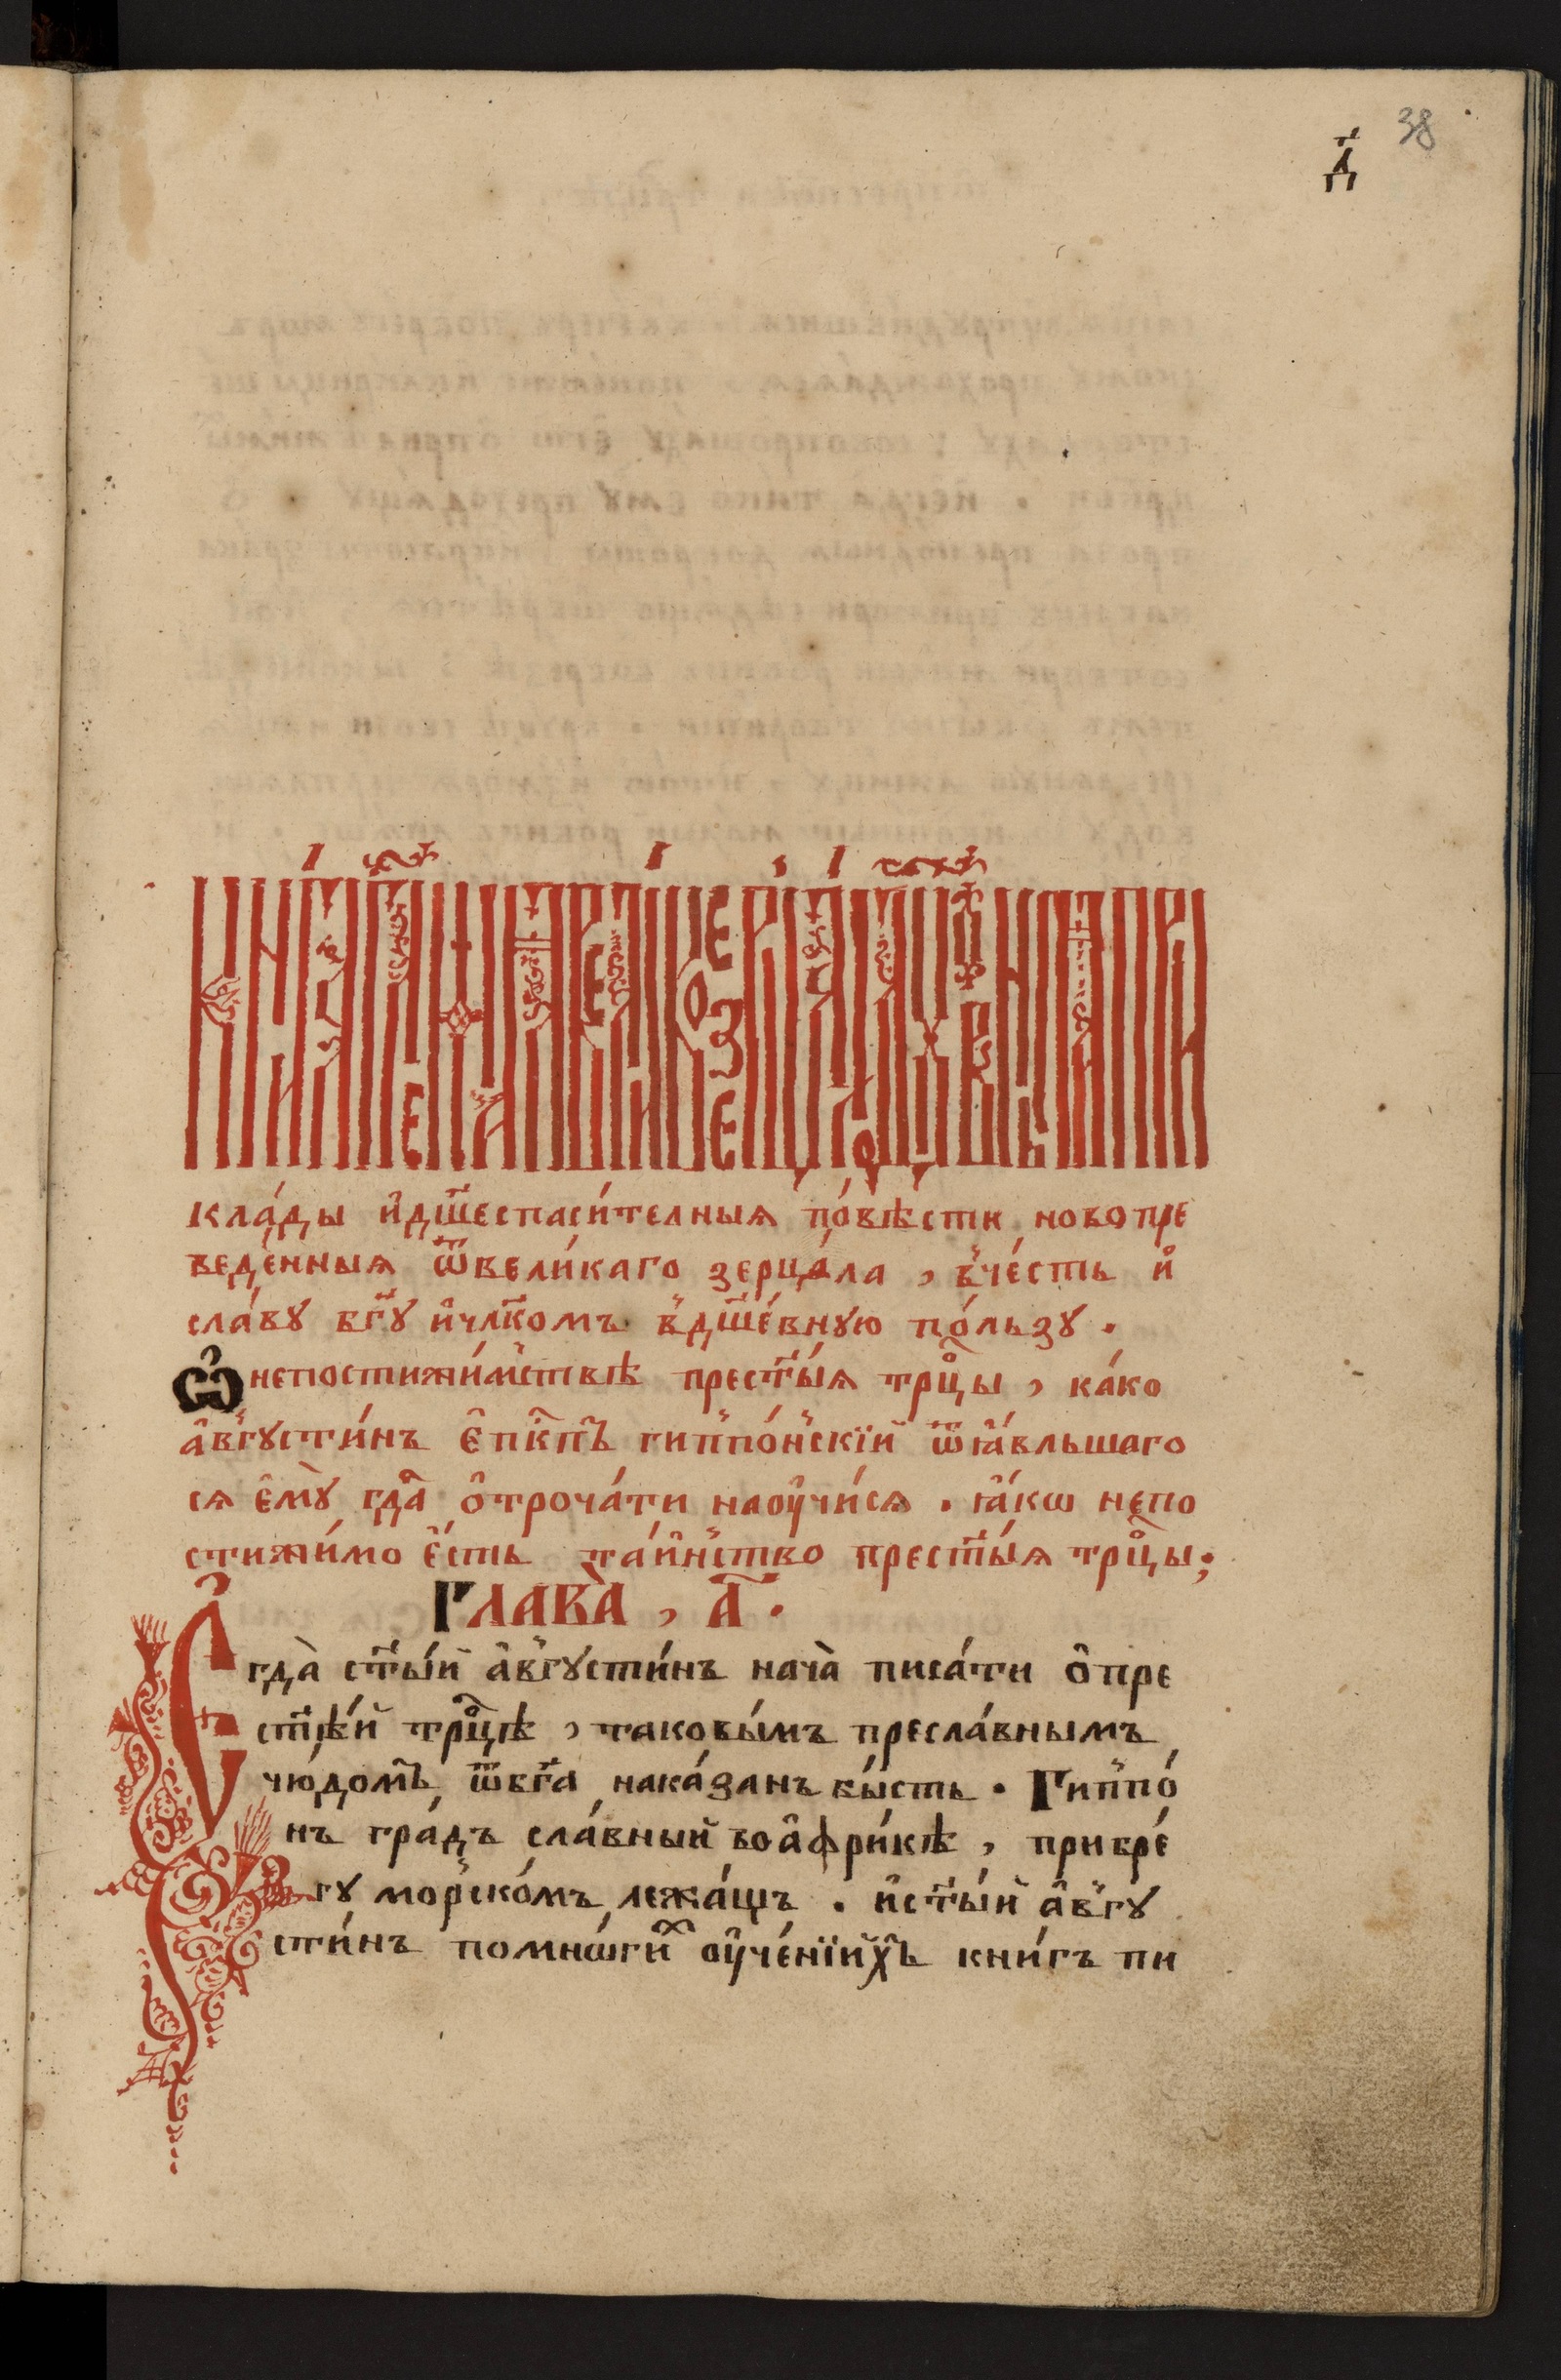 38
д҃
Книга глаголемая Великое Зерцало, душевныя при
кла́ды и҆дш҃еспаси́телныя по́вѣсти новопре
веде́нныя ѿвели́каго зерца́ла , в̾че́сть и҆
сла́ву бг҃у и҆члк҃омъ в̾дш҃е́вную по́льзу .
Ѡ҆ непостижи́мствѣ прест҃ы́я трⷪ҇цы , ка́ко
а҆в̾густи́нъ є҆пкⷭ҇пъ гип̾по́н̾скїй ѿꙗ҆́вльшаго
ся є҆мꙋ̀ гдⷭ҇а ѻ҆троча́ти наоу҆чи́ся . ꙗ҆́кѡ непо
стижи́мо є҆́сть та́и҆нство прест҃ы́я трⷪ҇цы ;
Глава̀ , а҃ .
Є҆гда̀ ст҃ы́й а҆в̾густи́нъ нача̀ писа́ти ѻ҆пре
ст҃ѣ́й трⷪ҇цѣ , таковы́мъ пресла́внымъ
чю́домъ ѿбг҃а нака́занъ бы́сть . Гип̾по́
нъ гра́дъ сла́вный воа҆фри́кѣ , прибре́
гу морско́мъ лежа́щъ . и҆ст҃ы́й а҆в̾гу
сти́нъ помнѡ́гиⷯ оу҆че́нїихъ кни́гъ пи